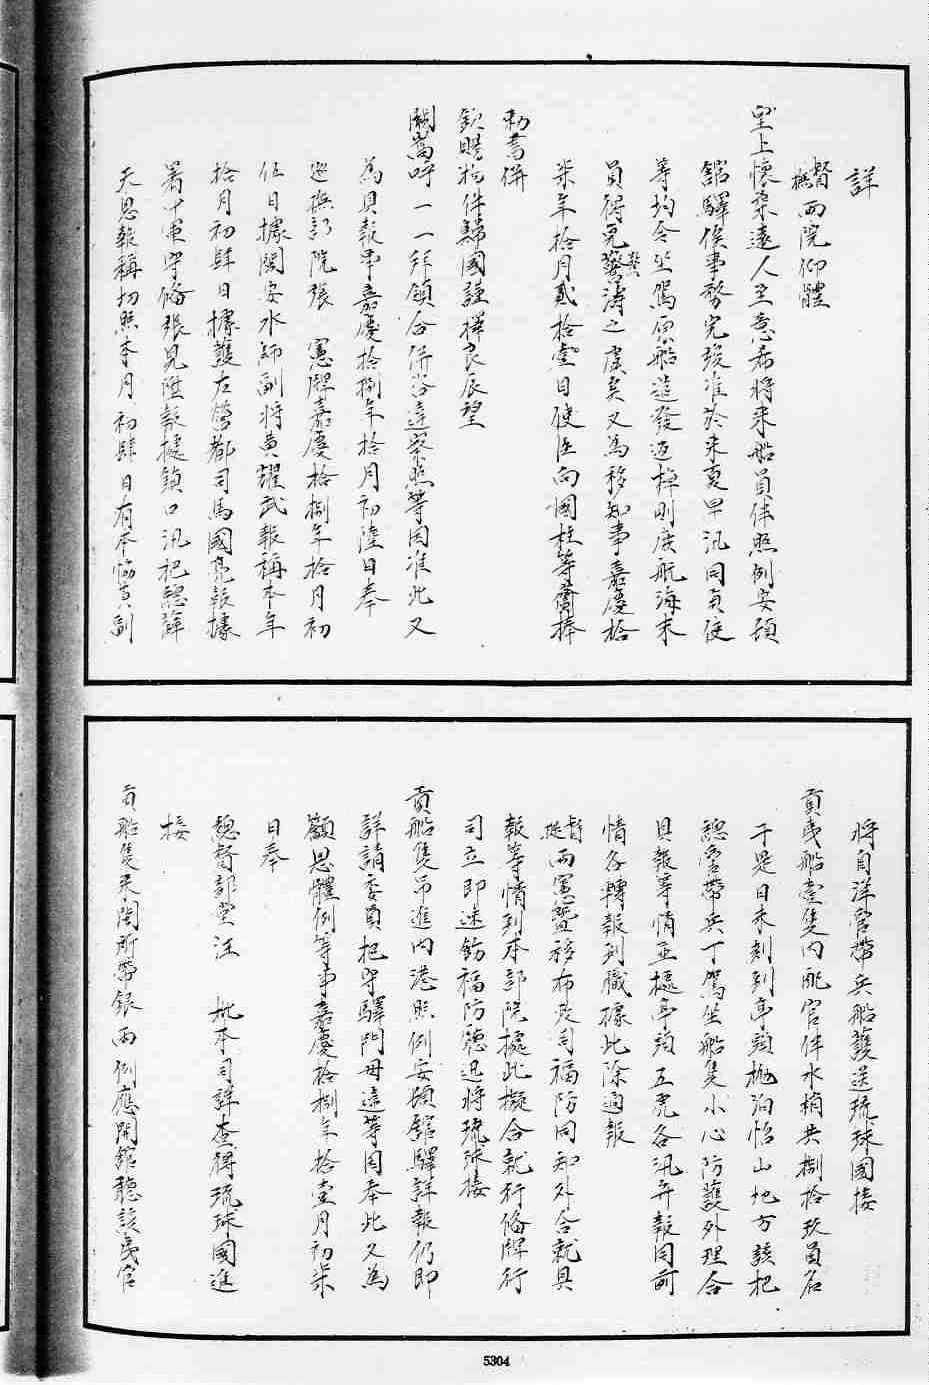 詳
督撫兩院仰體
皇上懷柔遠人至意希將來船員伴照例安頓
館驛俟事務完竣准於來夏早汛同貢使
等均令坐駕原船遣發返棹則庶航海末
員得免驚濤之虞矣又為移知事嘉慶拾
柒年拾月貳拾壹日使臣向國柱等齎捧
勅書併
欽賜物件歸國謹擇良辰望
闕嵩呼一一拜領合併咨達察照等因准此又
為具報事嘉慶拾捌年拾月初陸日奉
巡撫部院張 憲牌嘉慶拾捌年拾月初
伍日據閩安水師副將黃耀武報稱本年
拾月初肆日據護左營都司馬國亮報據
署中軍守備張見陞報據鎮口汛把總薛
天恩報稱切照本月初肆日有本協員副
將自洋營帶兵船護送琉球國接
貢夷船壹隻內配官伴水梢共捌拾玖員名
于是日未刻到亭頭拋泊怡山地方該把
總督帶兵丁駕坐船隻小心防護外理合
具報等情並據亭頭五虎各汛弁報同前
情各轉報到職據此除通報
督撫兩憲暨移布政司福防同知外合就具
報等情到本部院據此擬合就行備牌行
司立即速飭福防廳迅將琉球接
貢船隻吊進內港照例安頓館驛詳報仍即
詳請委員把守驛門毋違等因奉此又為
籲恩體例等事嘉慶拾捌年拾壹月初柒
日奉
總督部堂汪 批本司詳查得琉球國進
接
貢船隻來閩所帶銀兩例應開館聽該夷官
5304